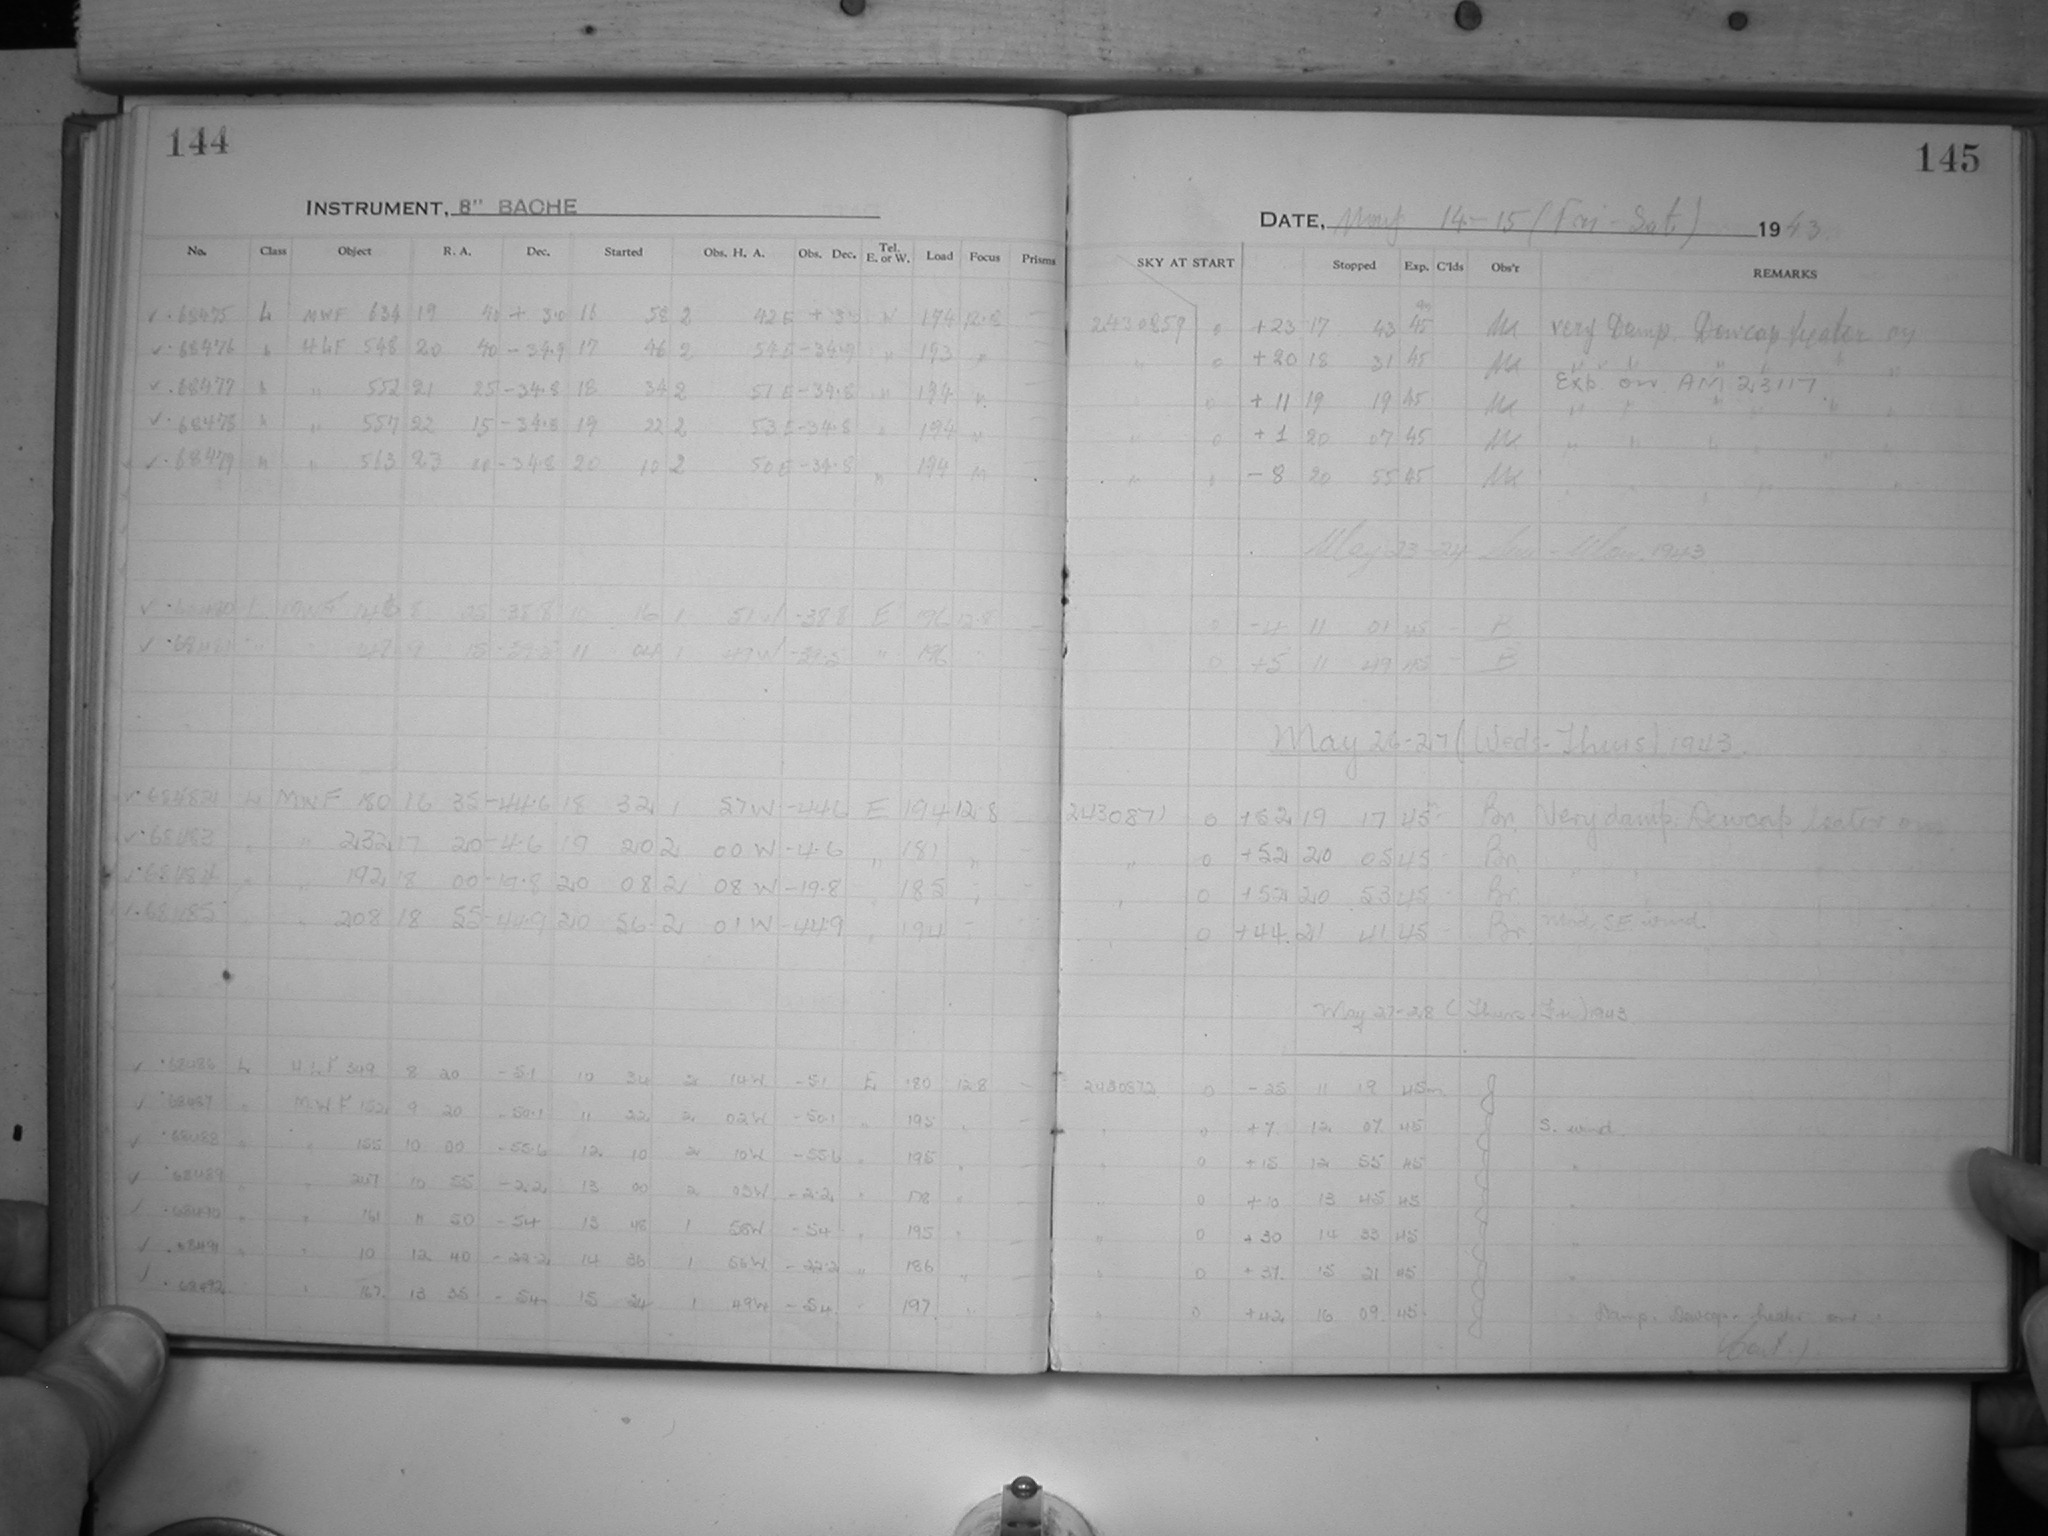 144
INSTRUMENT, 8" BACHE
No. Class Object R. A. Dec. Started Obs. H. A. Obs. Dec. Tel. E. or W. Load Focus Prisms
✓ · 68475 L MWF 634 19 40 + 3.0 16 58 2 42 E + 3.0 W 174 12.8 —
✓ · 68476 " HLF 548 20 40 - 34.9 17 46 2 54 E - 34.9 " 193 "
✓ · 68477 " " 552 21 25 - 34.8 18 34 2 51 E - 34.8 " 194 "
✓ · 68478 " " 557 22 15 - 34.8 19 22 2 53 E - 34.8 " 194 "
✓ · 68479 " " 563 23 - 34.8 20 10 2 50 E - 34.8 " 194 "
✓ · 68480 L MWF 146 8 25 - 38.8 10 16 1 51 W - 38.8 E 196 12.8 —
✓ · 68481 " " 147 9 15 11 04 1 47 W " 196 "
✓ · 68482 L MWF 180 16 35 - 44.6 18 32 1 57 W - 44.6 E 194 12.8
✓ · 68483 " " 232 17 20 - 4.6 19 20 2 00 W - 4.6 " 181 " —
✓ · 68484 " " 192 18 00 - 19.8 20 08 2 08 W - 19.8 " 185 " —
✓ · 68485 " " 208 18 55 - 44.9 20 56 2 01 W - 44.9 " 194 " —
✓ · 68486 L HLF 349 8 20 - 51 10 34 2 14 W - 51 E 180 12.8 —
✓ · 68487 " MWF 152 9 20 - 50.1 11 22 2 02 W - 50.1 " 195 " —
✓ · 68488 " " 155 10 00 - 55.6 12 10 2 10 W - 55.6 " 195 " —
✓ · 68489 " " 247 10 55 - 2.2 13 00 2 05 W - 2.2 " 178 " —
✓ · 68490 " " 161 11 50 - 54 13 48 1 58 W - 54 " 195 " —
✓ · 68491 " " 10 12 40 - 22.2 14 36 1 56 W - 22.2 " 186 " —
✓ · 68492 " 167 13 35 - 54 15 24 1 49 W - 54 " 197 " —
145
DATE, May 14-15 (Fri - Sat.) 1943.
SKY AT START Stopped Exp. C'lds Obs'r REMARKS
2430859 0 +23 17 43 45 m MK Very Damp. Dewcap heater on
" 0 +20 18 31 45 MK " " " " "
Exp. on AM 23117.
" 0 +11 19 19 45 MK " " " " "
" 0 +1 20 07 45 MK " " " " "
" " -8 20 55 45 MK " " " " "
May 23-24 Sun - Mon. 1943
0 -4 11 01 45 - B
0 +5 11 49 45 - B
May 26-27 (Weds-Thurs) 1943.
2430871 0 +52 19 17 45 - Br. Very damp. Dewcap heater on
" 0 +52 20 05 45 - Br. " "
" 0 +52 20 53 45 - Br. " "
" 0 +44 21 41 45 - Br. SE wind.
May 27-28 (Thurs - Fri) 1943
2430872 0 -25 11 19 45m J
" 0 +7 12 07 45 J S. wind.
" 0 +15 12 55 45 J "
" 0 +10 13 45 45 J "
" 0 +30 14 33 45 J "
" 0 +37 15 21 45 J "
" 0 +42 16 09 45 J " Damp. Dewcap - heater on.
(Cont.)